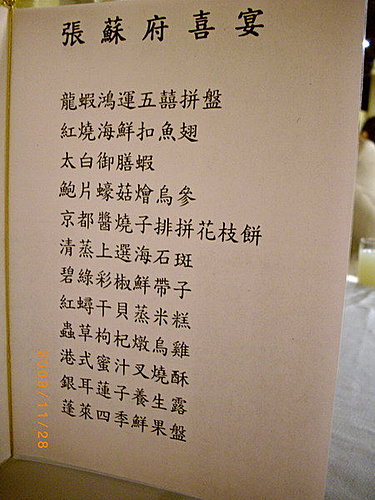 張蘇府喜宴
龍蝦鴻運五囍拼盤
紅燒海鮮扣魚翅
太白御膳蝦
鮑片蠔菇燴烏參
京都醬燒子排拼花枝餅
清蒸上選海石斑
碧綠彩椒鮮帶子
紅蟳干貝蒸米糕
蟲草枸杞燉烏雞
港式蜜汁叉燒酥
銀耳蓮子養生露
蓬萊四季鮮果盤
2009/11/28